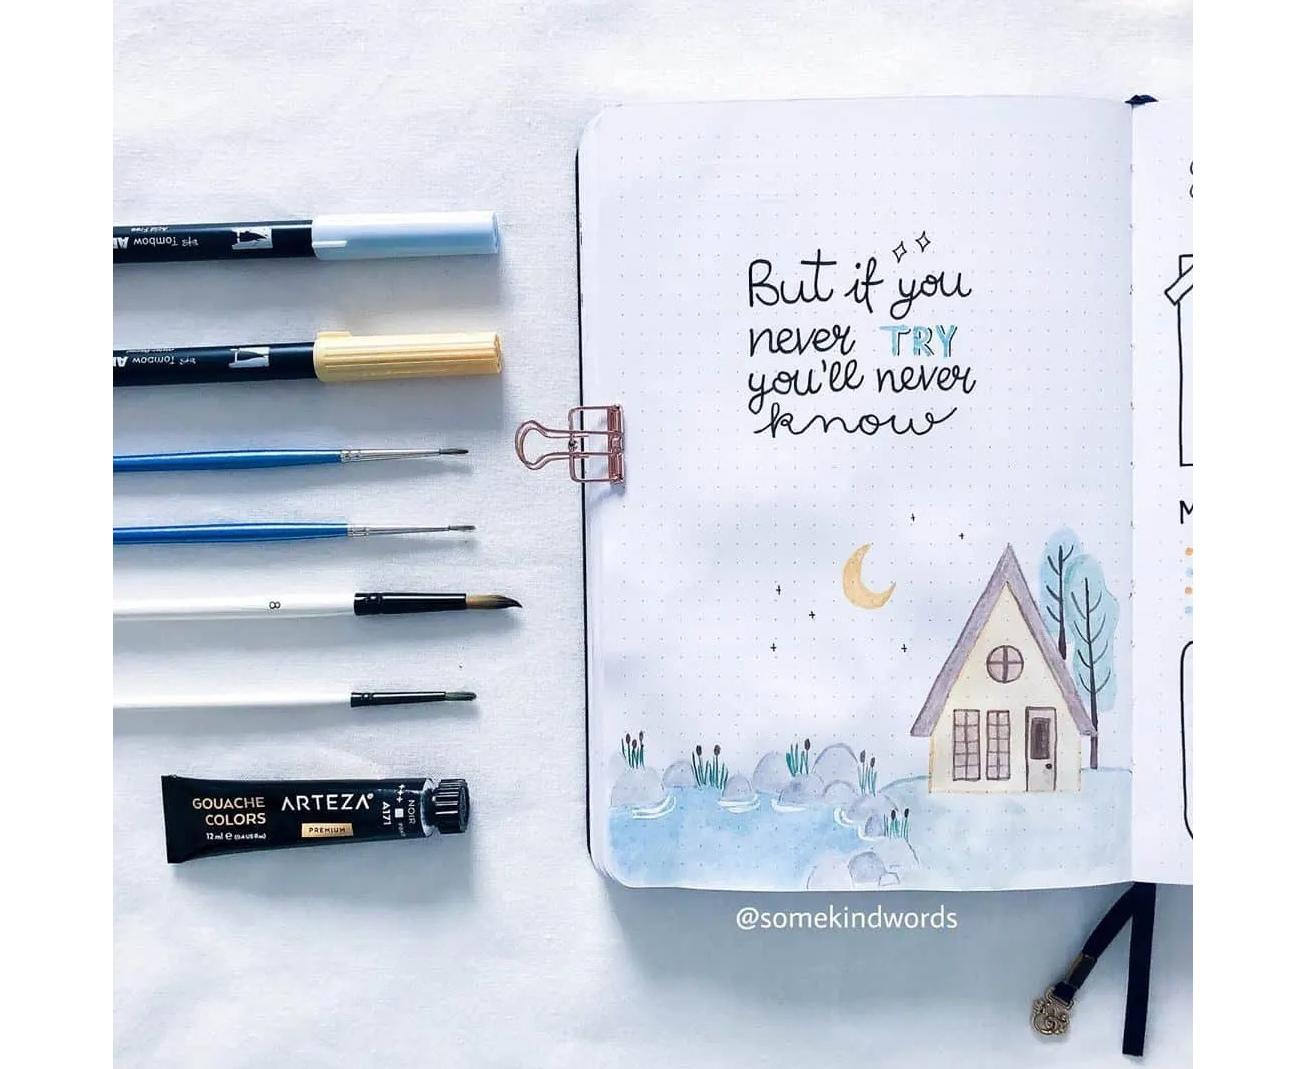 But if you
never TRY
you'll never
know
Tombow
Tombow
8
GOUACHE
COLORS
12 ml e (0.4 US FL oz)
ARTEZA
PREMIUM
NOIR
A171
@somekindwords
M